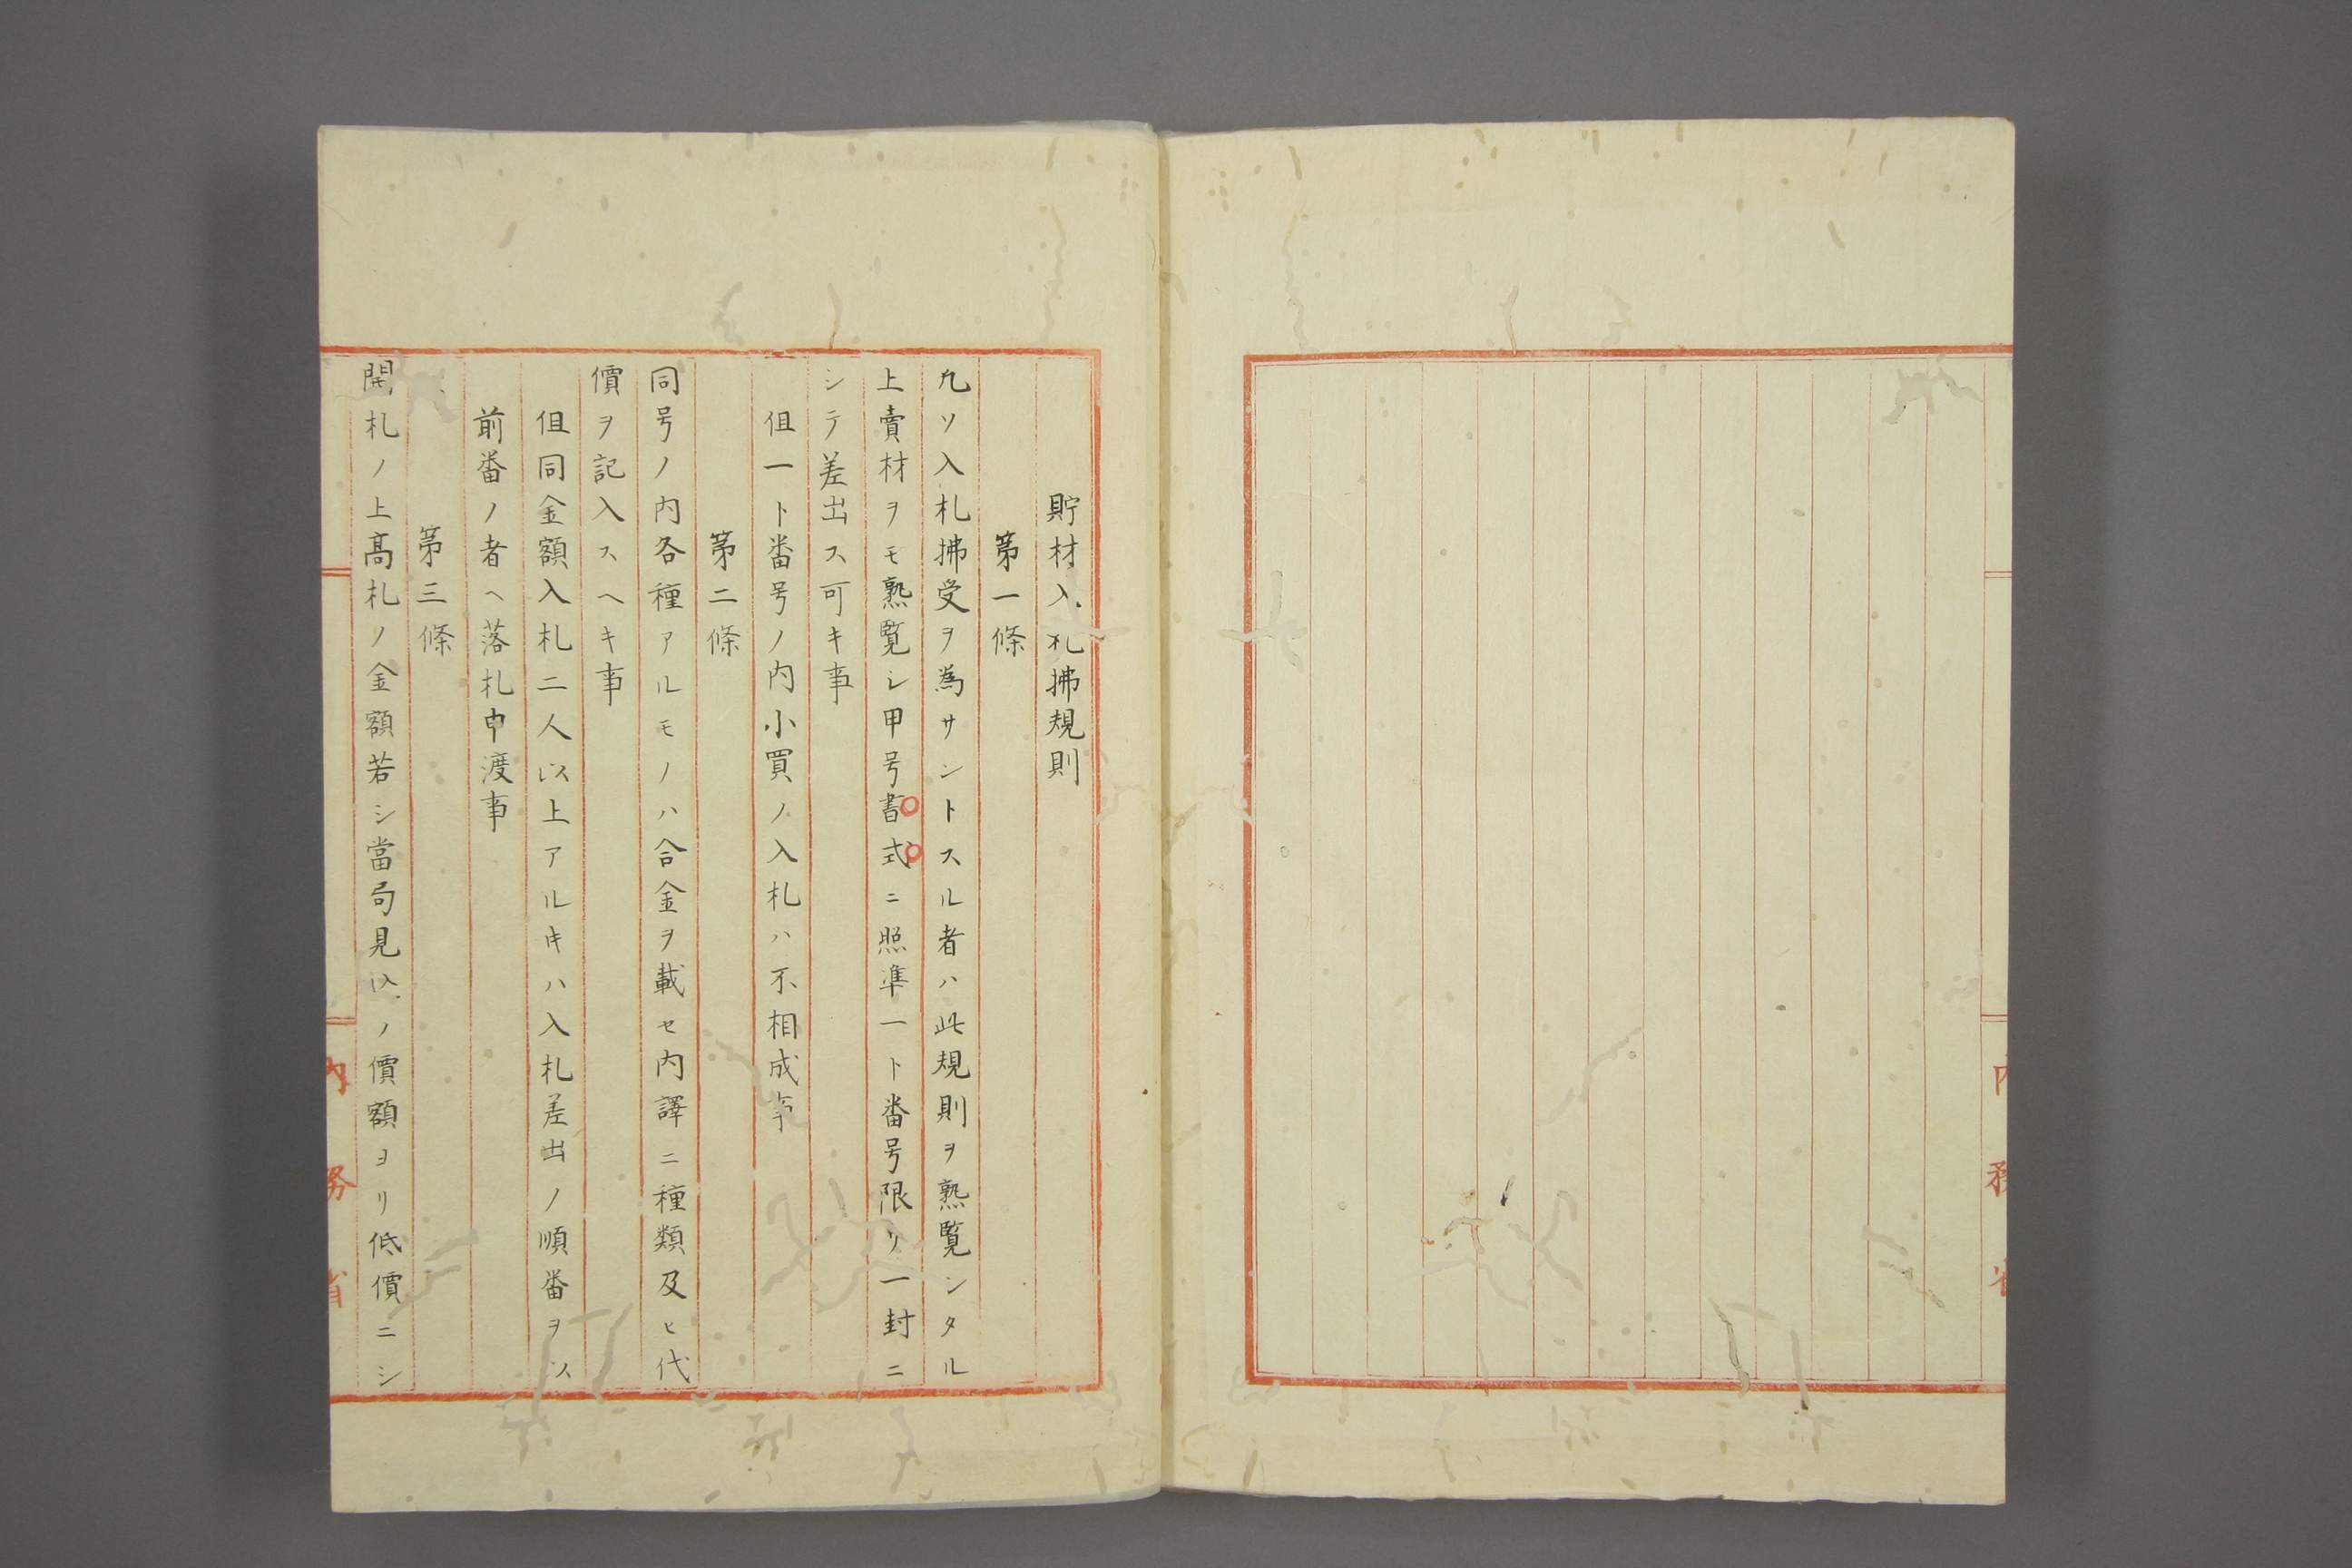 貯材入札拂規則
第一條
凢ソ入札拂受ヲ為サントスル者ハ此規則ヲ熟覧シタル
上賣材ヲモ熟覧シ甲号書式ニ照準一ト番号限リ一封ニ
シテ差出ス可キ事
但一ト番号ノ内小買ノ入札ハ不相成事
第二條
同号ノ内各種アルモノハ合金ヲ載セ内譯ニ種類及ヒ代
價ヲ記入スヘキ事
但同金額入札二人以上アルキハ入札差出ノ順番ヲ以
前番ノ者ヘ落札申渡事
第三條
開札ノ上高札ノ金額若シ當局見込ノ價額ヨリ低價ニシ
内務省